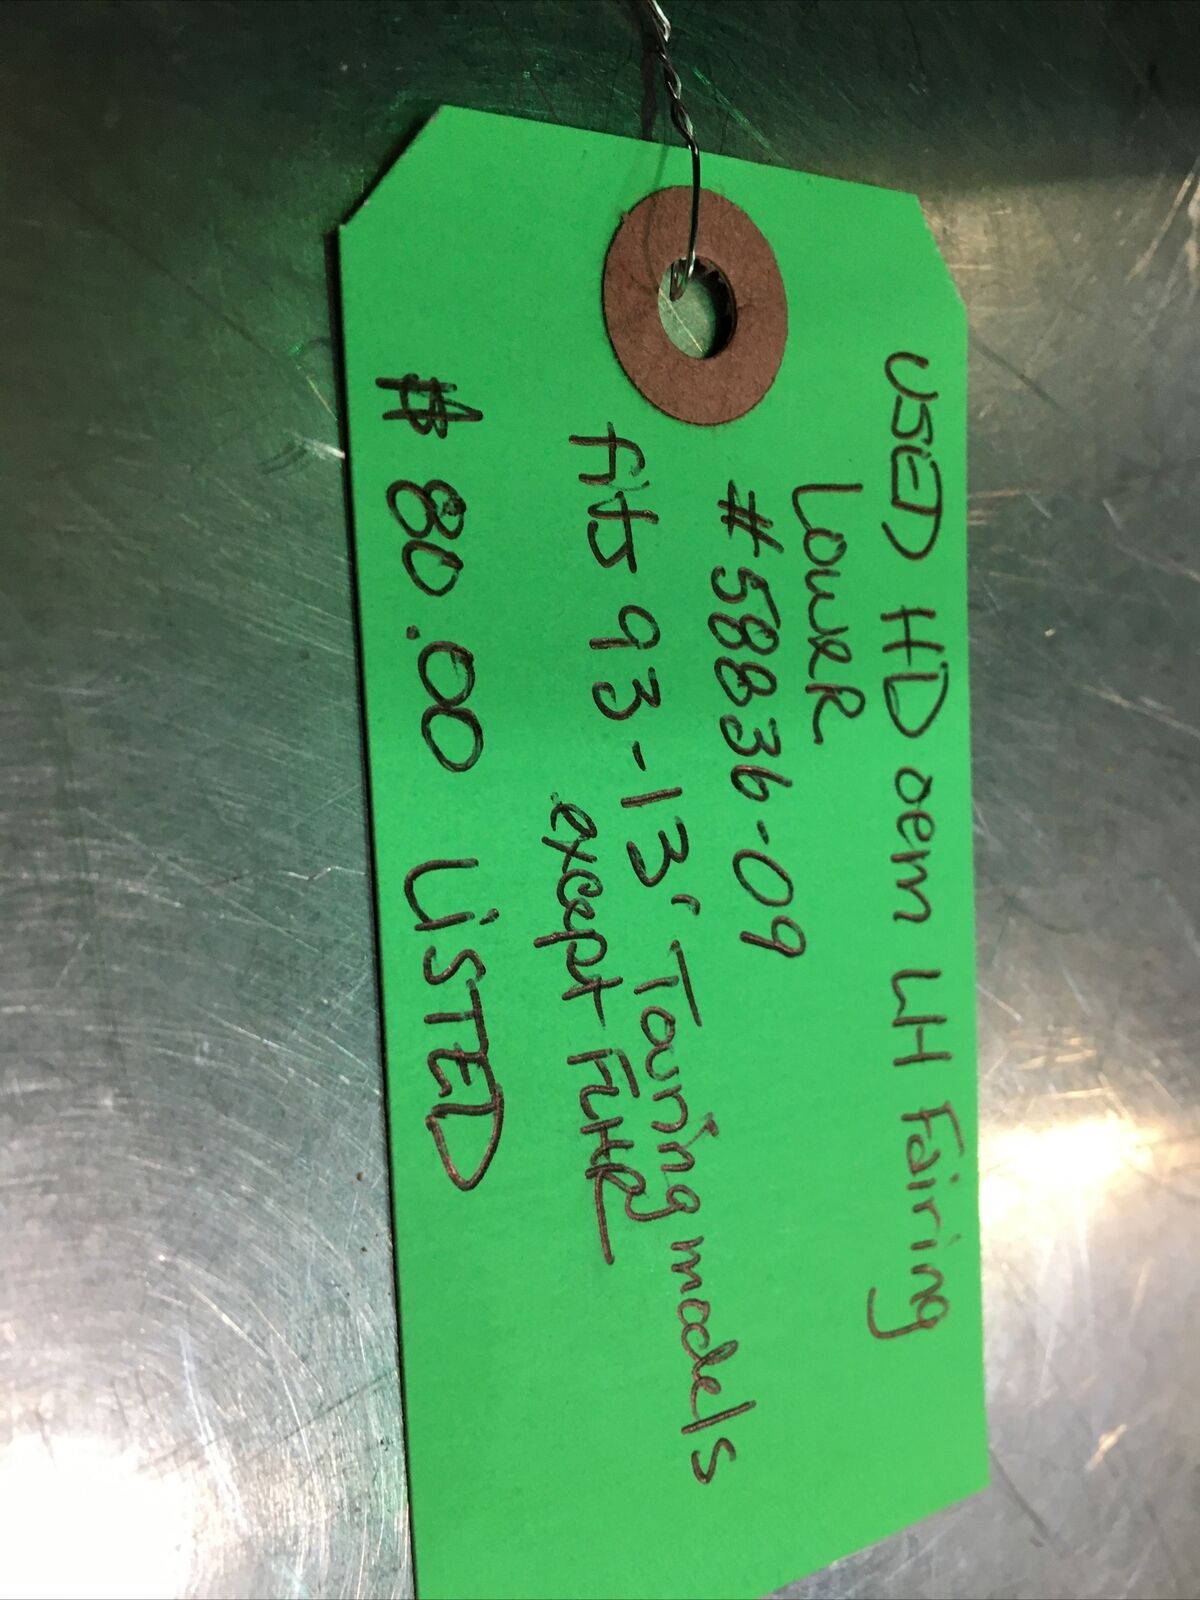 USED HD oem LH Fairing
LOWER
#58836-09
fits 93-13' Touring models
except FLHR
$80.00 LISTED